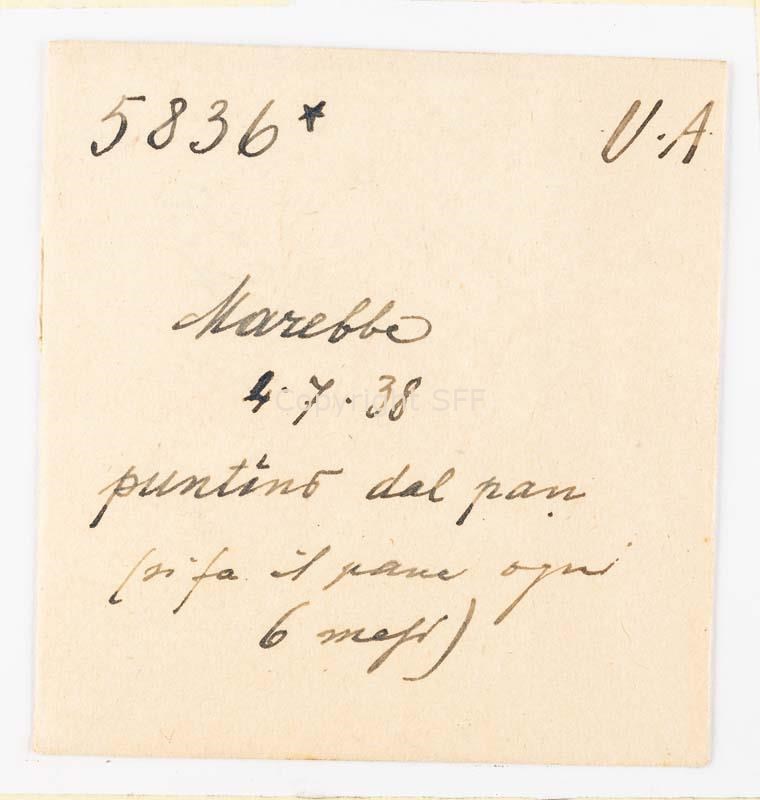 5836* U.A
Marebbe
4.7.38
Copyright SFF
puntino dal pan
(si fa il pane ogni
6 mesi)